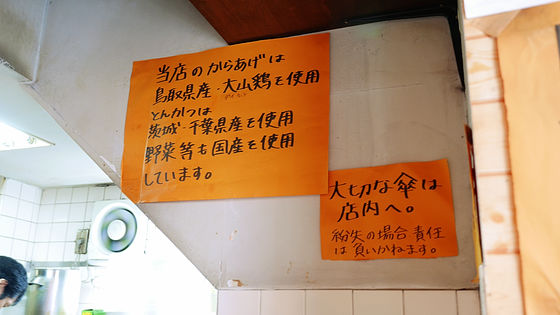 当店のからあげは
鳥取県産・大山鶏を使用
とんかつは
茨城・千葉県産を使用
野菜等も国産を使用
しています。
大切な傘は
店内へ。
紛失の場合責任
は負いかねます。